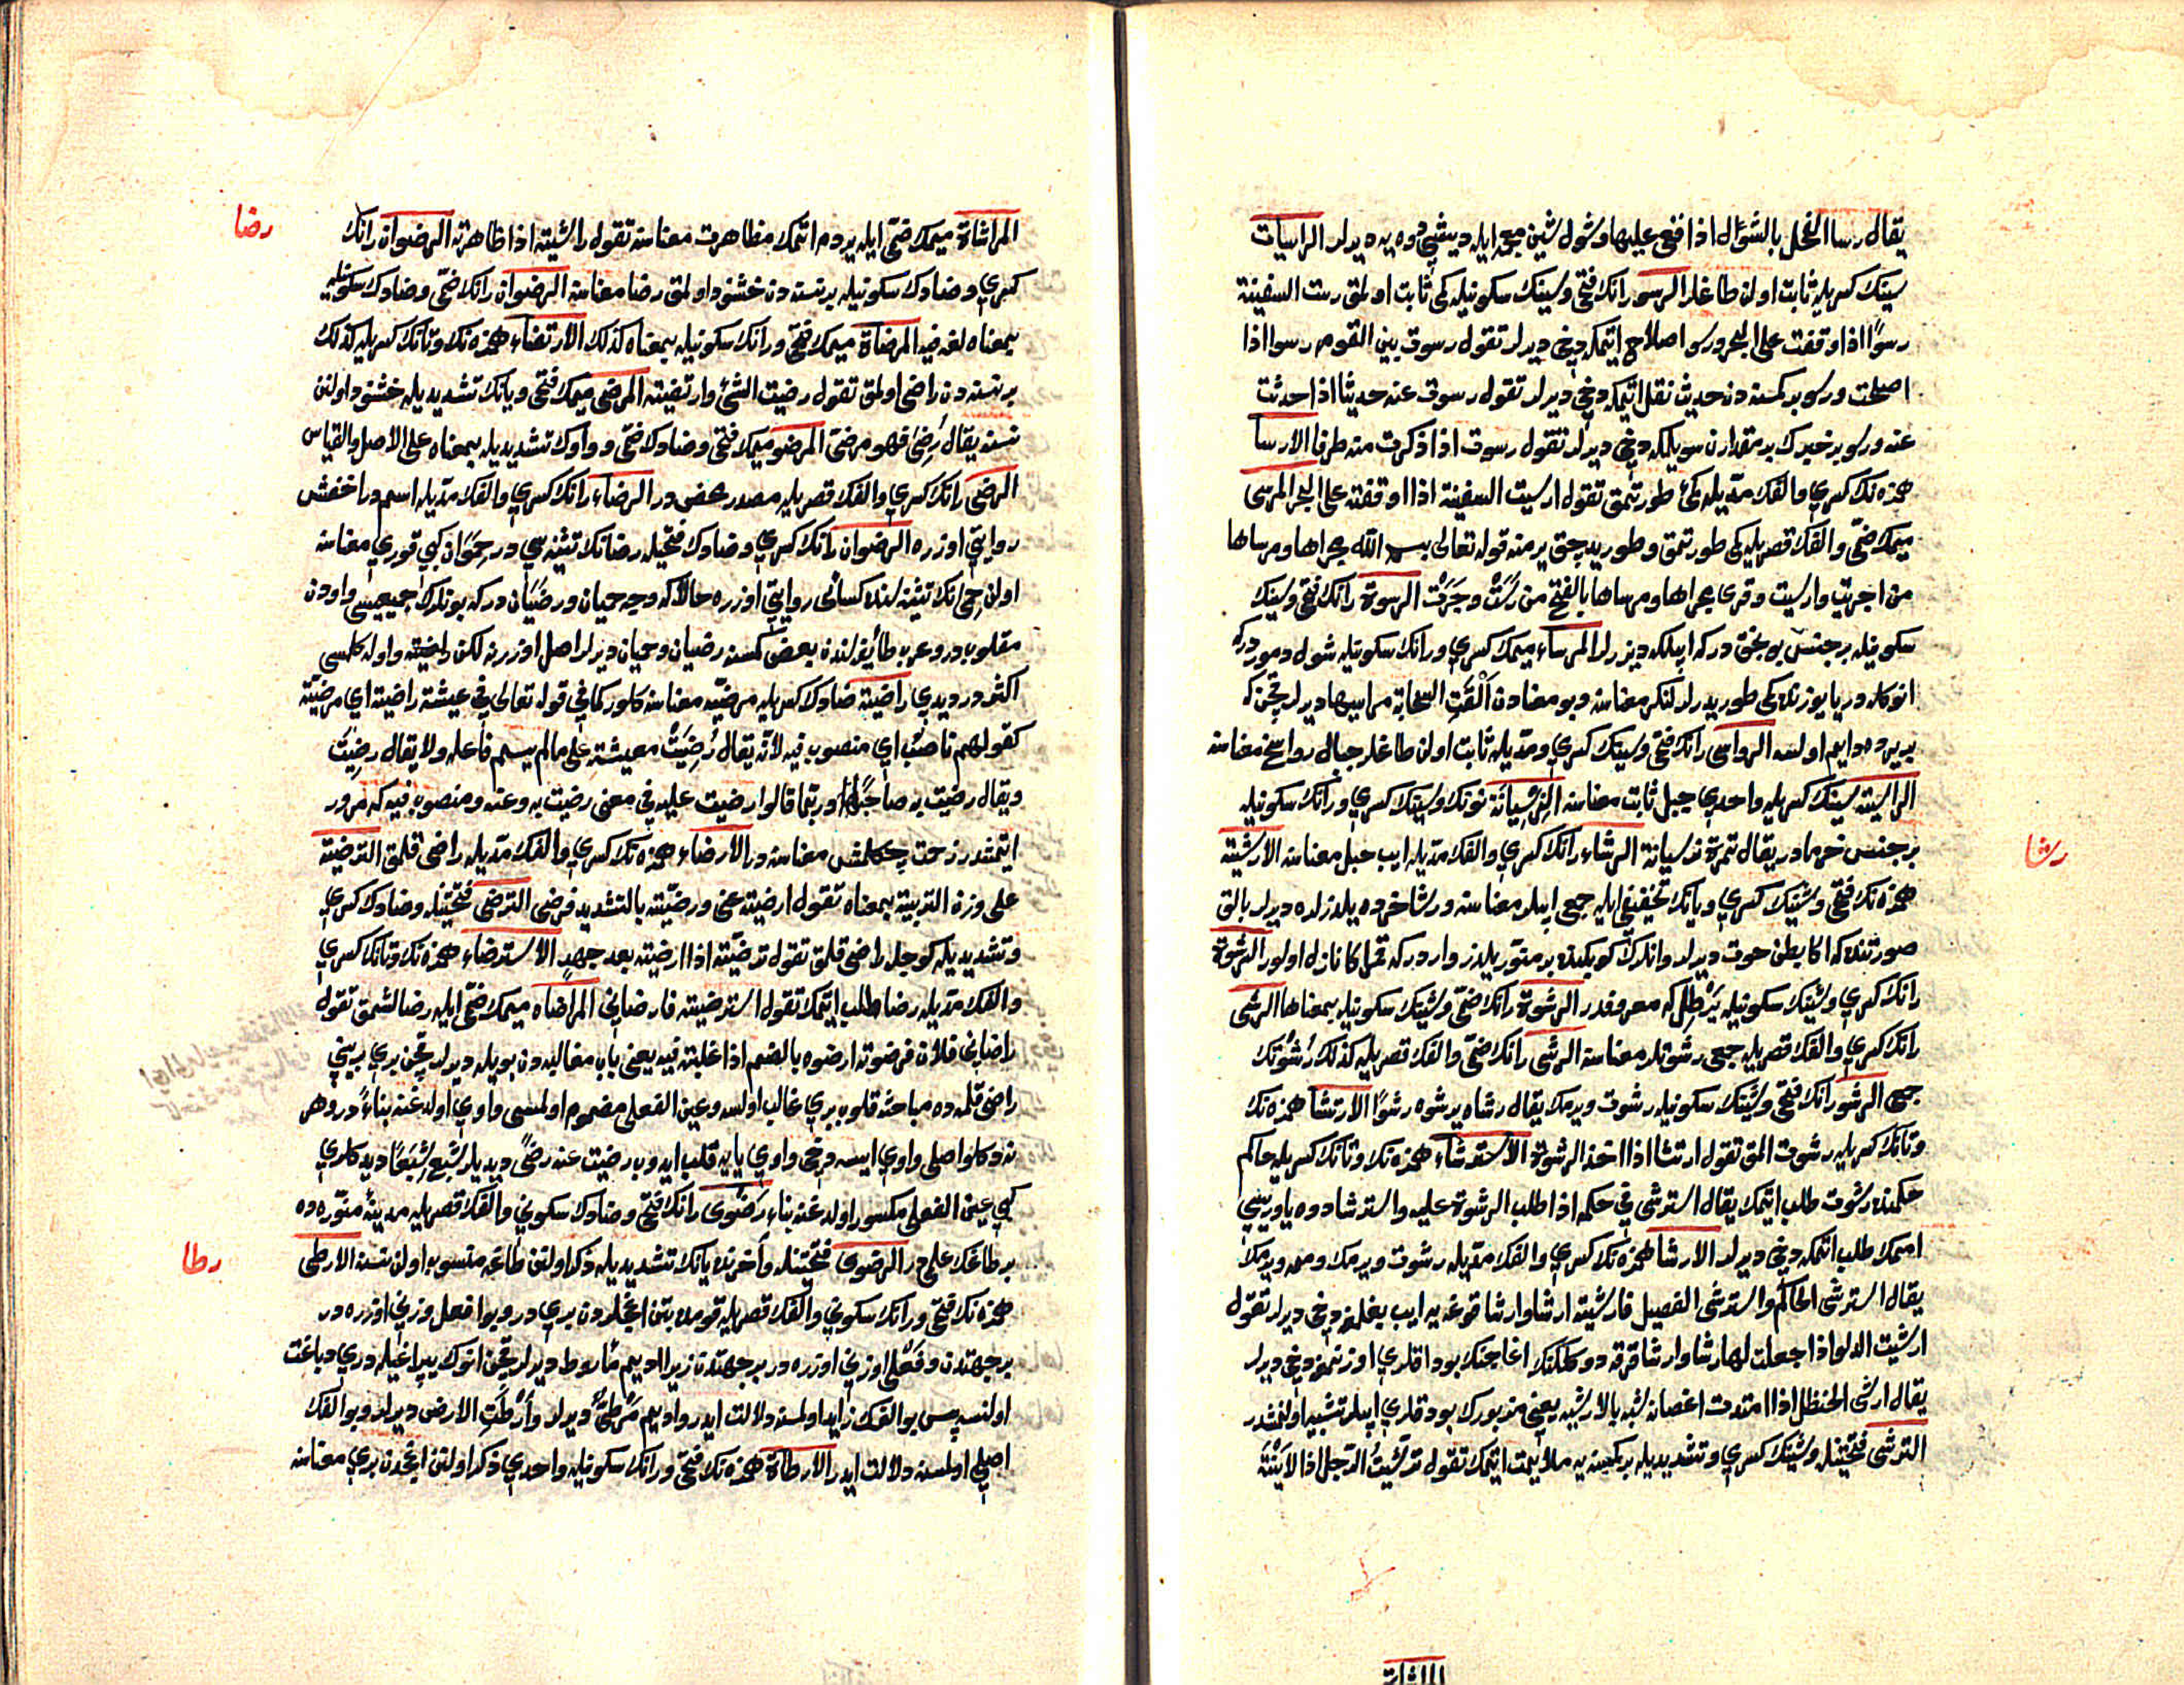 يقال رسا الفحل بالشوّل اذا قعي عليها وشول شين معجمه ايله ديشي دوه يه ديرلر الراسيات
سينك كسريله ثابت اولن طاغلر الرسو رانك فتحي وسينك سكونيله كي ثابت اولمق رست السفينة
رسوّا اذا وقفت على البحر ورسو اصلاح ايتمكه دخي ديرلر تقول رسوت بين القوم رسوا اذا
اصلحت ورسو بر كمسنه دن حديث نقل ايتمكه دخي ديرلر تقول رسوت عنه حديثا اذا حدثت
عنه ورسو بر خبرك بر مقدارن سويلمكه دخي ديرلر تقول رسوت اذا ذكرت منه طرفا الارسا
همزه نك كسري والفك مدّيله كمي طورتمق تقول ارسيت السفينة اذا اوقفته على البحر المرسى
ميمك ضمّي والفك قصريله كمي طورتمق وطوريدجق ير منه قوله تعالى بسم الله مجراها ومرساها
من اجريت وارسيت وقرئ مجراها ومرساها بالفتح من رَسَتْ وجَرَتْ الرسوة رانك فتحي وسينك
سكونيله بر جنس بونجق دركه ايپلكه ديزرلر المرساء ميمك كسري ورانك سكونيله شول دموردركه
انوكله دريا يوزنده كمي طوريدرلر لنكر معناسنه وبو معنادن اَلْقَتِ السحابة مراسيها ديرلر قچن كه
بر يرده دايم اولسه الرواسى رانك فتحي وسينك كسري ومدّيله ثابت اولن طاغلر جبال رواسخ معناسنه
الراسية سينك كسريله واحدي جبل ثابت معناسنه النِرْسِيانَة نونك وسينك كسري ورانك سكونيله
بر جنس خرمادر يقال تمرة نرسيانة الرشاء رانك كسري والفك مدّيله ايپ حبل معناسنه الارشية
رشا
همزه نك فتحي وشينك كسري ويانك تخفيفي ايله جمعي ايپلر معناسنه ورشا خرده يلدزلره ديرلر بالق
صورتنده كه اكا بطن حوت ديرلر وانلرك كوبكنده بر منوّر يلدز واردركه قمر اكا نازل اولور الرشوة
رانك كسري وشينك سكونيله بَرْطِل كه معروفدر الرشوة رانك ضمّي وشينك سكونيله بمعناها الرشى
رانك كسري والفك قصريله جمعي رشوتلر معناسنه الرشى رانك ضمّي والفك قصريله كذلك رُشْوَتك
جمعي الرشو رانك فتحي وشينك سكونيله رشوت ويرمك يقال رشاه يرشوه رشوًا الارتشا همزه نك
وتانك كسريله رشوت المق تقول ارتشا اذا اخذ الرشوة الاسترشاء همزه نك وتانك كسريله حاكم
حكمنده رشوت طلب ايتمك يقال استرشى في حكمه اذا طلب الرشوة عليه واسترشا دوه ياوريسي
اممك طلب اتمكه دخي ديرلر الارشا همزه نك كسري والفك مدّيله رشوت ويرمك ومه ويرمك
يقال استرشى الحاكم واسترشى الفصيل فارشيته ارشا وارشا قوغه يه ايپ بغلمغه دخي ديرلر تقول
ارشيت الدلو اذا جعلت لها رشا وارشا قرقه دوكلكنك اغاجنك بوداقلري اوزنمغه دخي ديرلر
يقال ارشى الحنظل اذا امتدت اغصانه شبه بالارشيه يعني مزبورك بوداقلري ايپلره تشبيه اولنمشدر
الترشى فتحتينله وشينك كسري وتشديديله بر كمسنه يه ملايمت ايتمك تقول ترشّيتُ الرّجل اذا لايَنْتَه
المراشاة
المراشاة ميمك ضمّي ايله يردم اتمك مظاهرت معناسنه تقول راشيته اذا ظاهرته الرضوان رانك
رضا
كسري وضادك سكونيله بر نسنه دن خشنود اولمق رضا معناسنه الرضوان رانك ضمّي وضادك سكونيله
بمعناه لغة فيه المرضاة ميمك فتحي ورانك سكونيله بمعناه كذلك الارتضاء همزه نك وتانك كسريله كذلك
بر نسنه دن راضى اولمق تقول رضيت الشئ وارتضيته المرضي ميمك فتحي ويانك تشديديله خشنود اولنن
نسنه يقال رُضِيَ فهو مرضيّ المرضو ميمك فتحي وضادك ضمّي وواوك تشديديله بمعناه على الاصل والقياس
الرضى رانك كسري والفك قصريله مصدر محض در الرضاء رانك كسري والفك مدّيله اسم در اخفش
روايتي اوزره الرضوان رانك كسري وضادك فتحيله رضانك تثنيه سي در حِمَوَان كبي قوري معناسنه
اولن حمى نك تثنيه سنده كسائى روايتي اوزره حالاكه وجه حميان ورضَيَان دركه بونلرك جميعيسى واودن
مقلوب در وعرب طائفه لرندن بعض كمسنه رضيان وحميان ديرلر اصل اوزرنه لكن راضيته واوله كلمسى
اكثر در ديدي راضية ضادك كسريله مرضيّه معناسنه كلور كما في قوله تعالى في عيشة راضية اي مرضيّة
كقولهم ناصبٌ اي منصوب فيه لانّه يقال رُضِيَتْ معيشته على ما لم يسم فاعله ولا يقال رضِيَت
ويقال رضيت به صاحبًا وربّما قالوا رضيت عليه في معنى رضيت به وعنه ومنصوب فيه كه مرور
ايتمشدر زحمت چكلمش معناسنه در الارضاء همزه نك كسري والفك مدّيله راضى قلمق الترضية
على وزن التربية بمعناه تقول ارضيته عني ورضّيته بالتشديد فرضي الترضى فتحتينله وضادك كسري
وتشديديله كوجله راضى قلمق تقول ترضّيته اذا ارضيته بعد جهد الاسترضاء همزه نك وتانك كسري
والفك مدّيله رضا طلب ايتمك تقول استرضيته فارضاني المراضاه ميمك ضمّي ايله رضالشمق تقول
راضاني فلان فرضوته ارضوه بالضم اذا غلبته فيه يعني باب مغالبه دن بويله ديرلر قچن بري بريني
راضى قلمه ده مباحثه قلوب بري غالب اولسه وعين الفعلى مضموم اولمسى واوي اولدغنه بناءً در وهر
نه دكلو اصلى واوي ايسه دخي واوي يايه قلب ايدوب رضيت عنه رضًى ديديلر شَبِعَ شِبَعًا ديدكلري
كبي عين الفعلى مكسور اولدغنه بناءً رَضْوى رانك فتحي وضادك سكوني والفك قصريله مدينۀ منوّره ده
بر طاغك علمى در الرضوي فتحتينله واخرنده يانك تشديديله ذكر اولنن طاغه منسوب اولن نسنه الارطى
رطا
همزه نك فتحي ورانك سكوني والفك قصريله قومده بتن اغجلردن بري در وبو افعل وزني اوزره در
بر جهتدن وفَعْلى اوزني اوزره در بر جهتدن زيرا اديم مأروط ديرلر قچن انوك يپراغيله دري دباغت
اولنسه پس بو الفك زايد اولمسنه دلالت ايدر واديم مَرْطِيٌّ ديرلر وأرْطَتِ الارض ديرلر وبو الفك
اصلي اولمسنه دلالت ايدر الارطاة همزه نك فتحي ورانك سكونيله واحدي ذكر اولنن اغجدن بري معناسنه